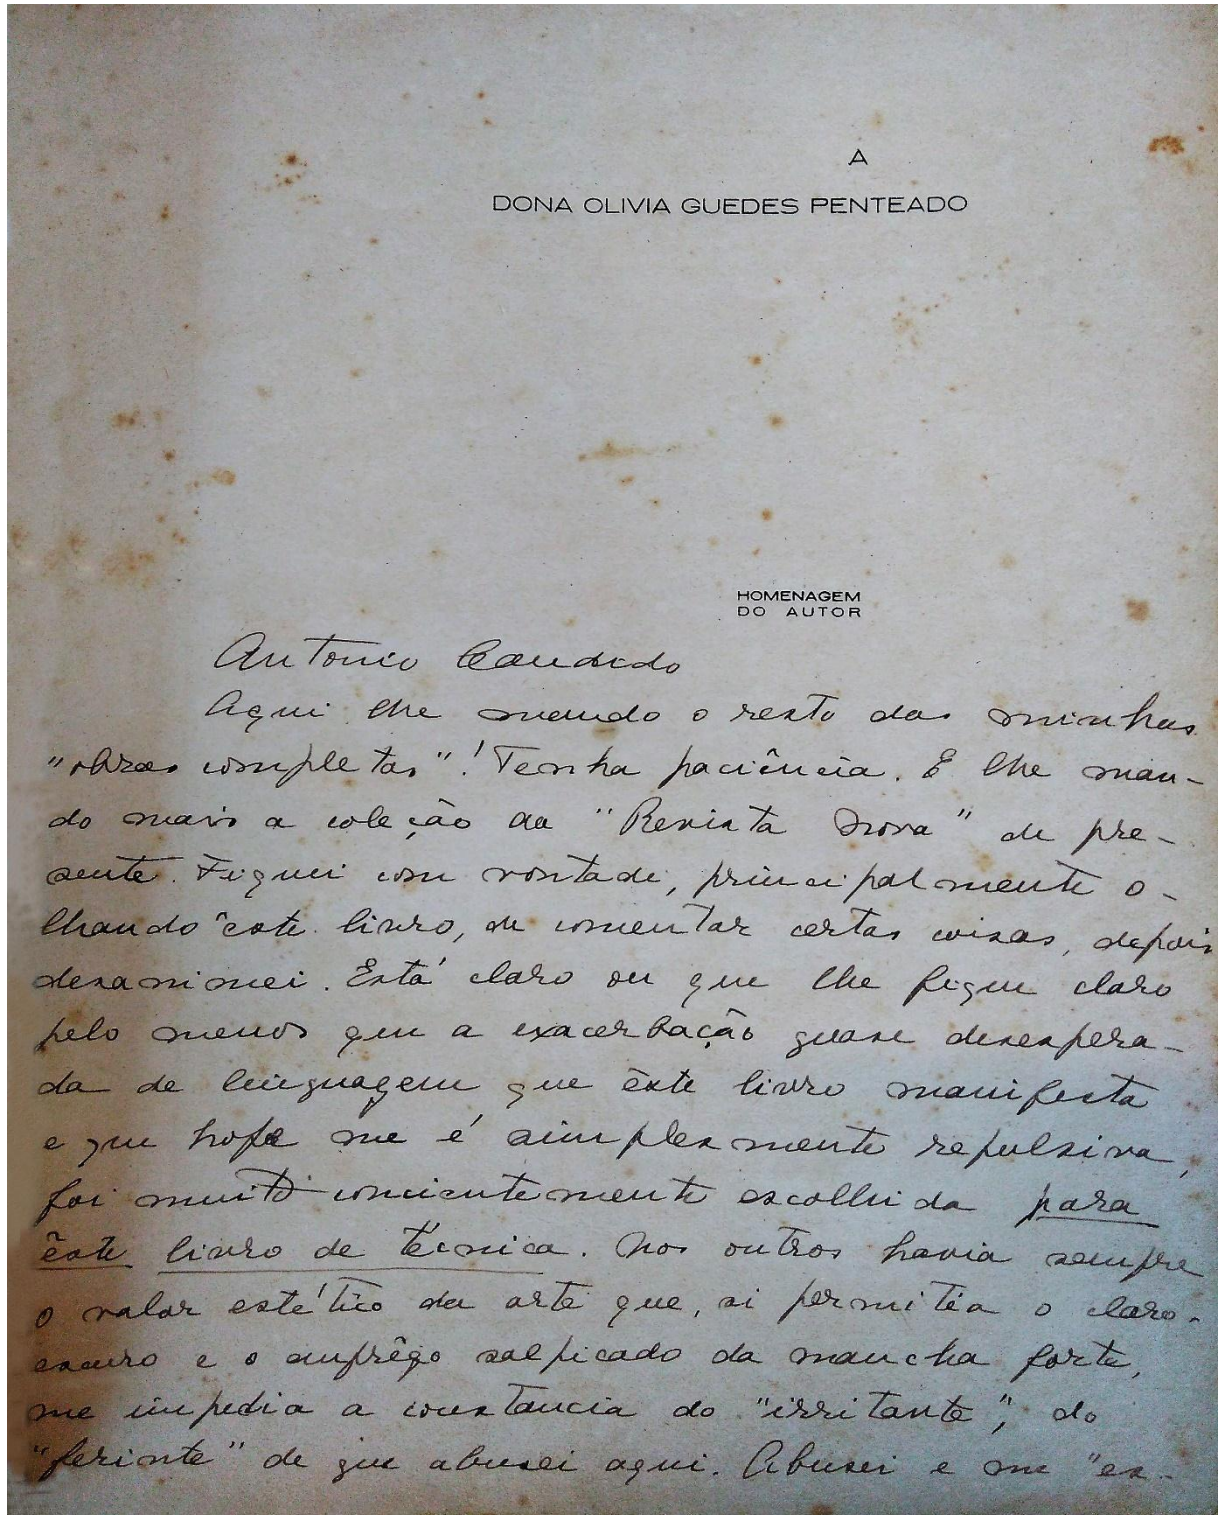 A
DONA OLIVIA GUEDES PENTEADO
HOMENAGEM
DO AUTOR
Antonio Candido
Aqui lhe mando o resto das minhas
"obras completas"! Tenha paciência. E lhe man-
do mais a coleção da "Revista Nova" de pre-
sente. Fiquei com vontade, principalmente o-
lhando êste livro, de comentar certas coisas, depois
desanimei. Está claro ou que lhe fique claro
pelo menos que a exacerbação quase desespera-
da de linguagem que êste livro manifesta
e que hoje me é simplesmente repulsiva,
foi muito concientemente escolhida para
êste livro de técnica. Nos outros havia sempre
o valor estético da arte que, si permitia o claro-
escuro e o emprêgo salpicado da mancha forte,
me impedia a constancia do "irritante", do
"ferinte" de que abusei aqui. Abusei e me "es-